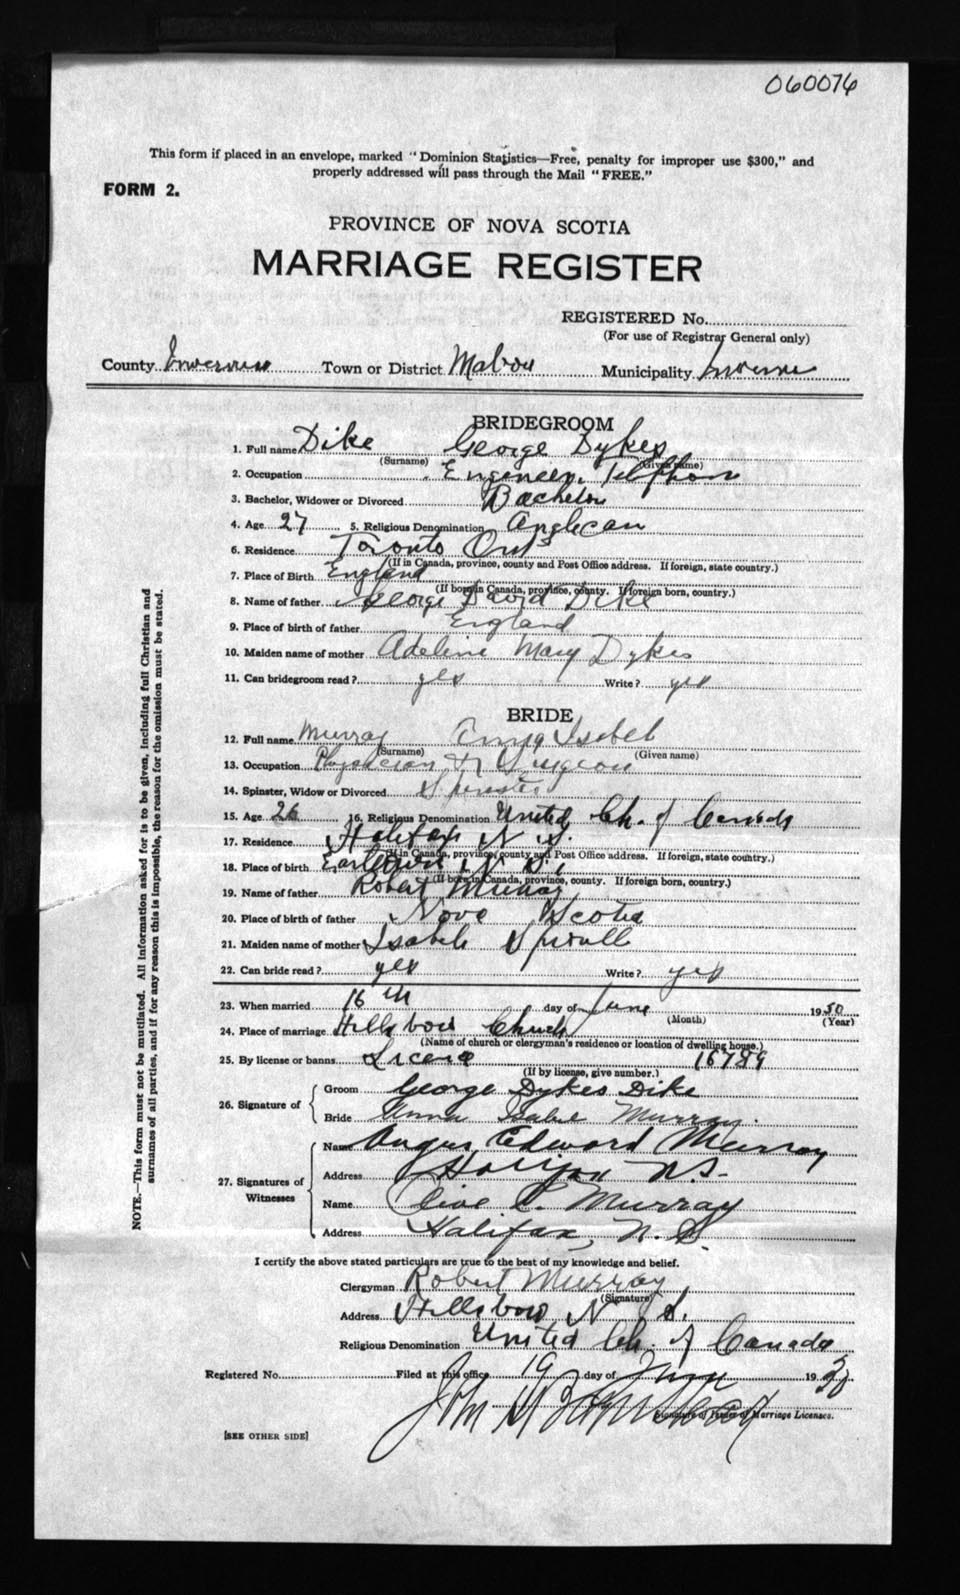 060076
This form if placed in an envelope, marked "Dominion Statistics—Free, penalty for improper use $300," and
properly addressed will pass through the Mail "FREE."
FORM 2.
PROVINCE OF NOVA SCOTIA
MARRIAGE REGISTER
REGISTERED No.
(For use of Registrar General only)
County Inverness Town or District Mabou Municipality Inverness
BRIDEGROOM
1. Full name Dike George Dykes
(Surname) (Given name)
2. Occupation Engineer, Telephone
3. Bachelor, Widower or Divorced Bachelor
4. Age 27 5. Religious Denomination Anglican
6. Residence Toronto Ont
(If in Canada, province, county and Post Office address. If foreign, state country.)
7. Place of Birth England
(If born in Canada, province, county. If foreign born, country.)
8. Name of father George David Dike
9. Place of birth of father England
10. Maiden name of mother Adeline Mary Dykes
11. Can bridegroom read? yes Write? yes
BRIDE
12. Full name Murray Anna Isabel
(Surname) (Given name)
13. Occupation Physician & Surgeon
14. Spinster, Widow or Divorced Spinster
15. Age 26 16. Religious Denomination United Ch. of Canada
17. Residence Halifax N S.
(If in Canada, province, county and Post Office address. If foreign, state country.)
18. Place of birth Earltown N S.
(If born in Canada, province, county. If foreign born, country.)
19. Name of father Robert Murray
20. Place of birth of father Nova Scotia
21. Maiden name of mother Isabel
22. Can bride read? yes Write? yes
23. When married 16th day of June 1930
(Month) (Year)
24. Place of marriage Hillsboro Church
(Name of church or clergyman's residence or location of dwelling house.)
25. By license or banns License 16789
(If by license, give number.)
26. Signature of Groom George Dykes Dike
Bride Anna Isabel Murray.
27. Signatures of Witnesses Name Angus Edward Murray
Address Halifax N.S.
Name Clive C. Murray
Address Halifax, N.S.
I certify the above stated particulars are true to the best of my knowledge and belief.
Clergyman Robert Murray
(Signature)
Address Hillsboro N S.
Religious Denomination United Ch. of Canada
Registered No. Filed at this office 19 day of June 1930
John
Signature of Issuer of Marriage Licenses.
[SEE OTHER SIDE]
NOTE.—This form must not be mutilated. All information asked for is to be given, including full Christian and
surnames of all parties, and if for any reason this is impossible, the reason for the omission must be stated.